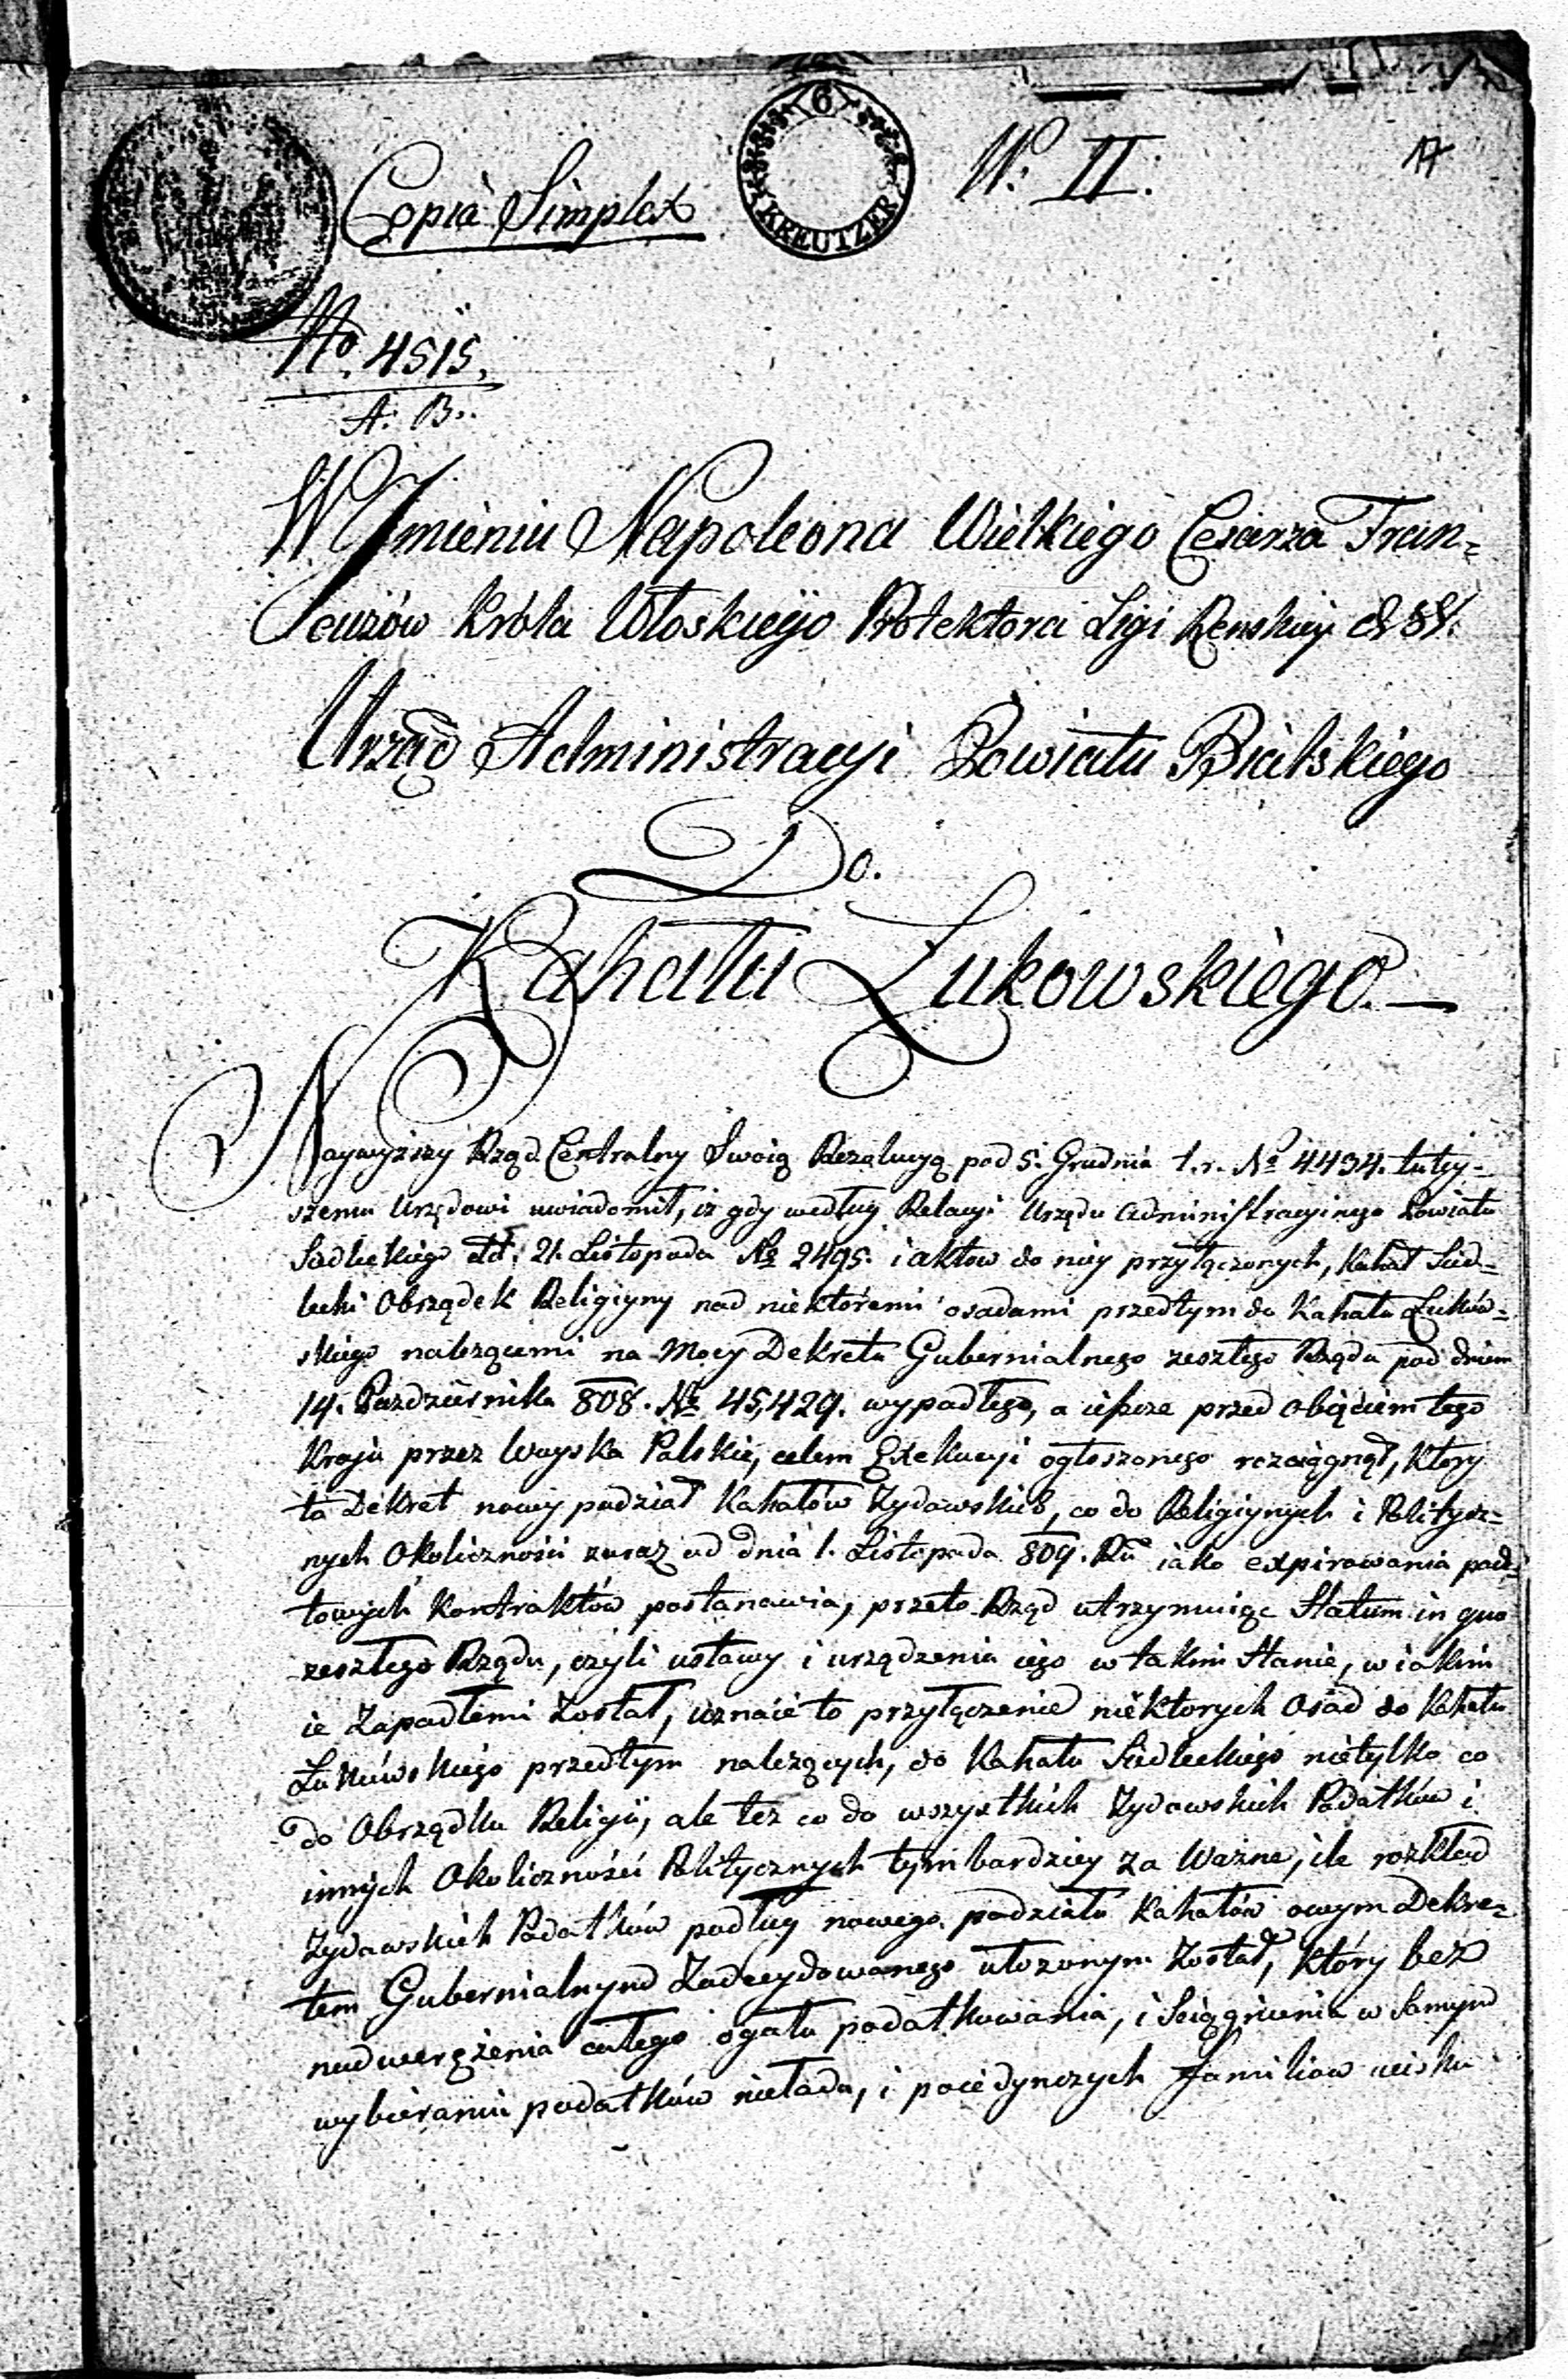 Copia Simplex
6 KREUTZER
N. II.
17
No. 4515.
A. B.
W Imieniu Napoleona Wielkiego Cesarza Fran=
cuzów Króla Włoskiego Protektora Ligi Renskiey &&.
Urząd Administracyi Powiatu Bialskiego
Do.
Kahału Łukowskiego.—
Naywyższy Rząd Centralny Swoią Rezolucyą pod 5. Grudnia t. r. No 4434. tutey=
szemu Urzędowi uwiadomił, iż gdy według Relacyi Urzędu Administracyinego Powiatu
Siedleckiego dd. 21. Listopada No 2495. i aktow do niey przyłączonych, Kahał Sied=
lecki Obrządek Religiyny nad niektóremi osadami przedtym do Kahału Łuków=
skiego należącemi na Mocy Dekretu Gubernialnego zeszłego Rządu pod dniem
14. Pazdziernika 808. No 45,429. wypadłego, a ieszcze przed obięciem tego
Kraju przez Woyska Polskie, celem Exekucyi ogłoszonego rozciągnął, który
to Dekret nowy podział Kahałów Zydowskich, co do Religiynych i Politycz=
nych Okoliczności zaraz od dnia 1. Listopada 809. Ru iako expirowania
towych Kontraktów postanawia, przeto Rząd utrzymuiąc Statum in quo
zeszłego Rządu, czyli ustawy i urządzenia iego w takim Stanie, w iakim
ie Zapadłemi Został, uznaie to przyłączenie niektorych Osad do Kahału
Łukówskiego przedtym należących, do Kahału Siedleckiego nietylko co
do Obrządku Religii, ale też co do wszystkich Zydowskich Podatków i
innych Okoliczności Politycznych tym bardziey za Ważne, ile rozkład
Zydowskich Podatków podług nowego podziału Kahałów owym Dekre=
tem Gubernialnym Zadecydowanego ułożonym Został, który bez
nadwerężenia całego ogółu podatkowania, i Sciągnienia w Samym
wybieraniu podatków nieładu, i poiedynczych Familiow ucisku